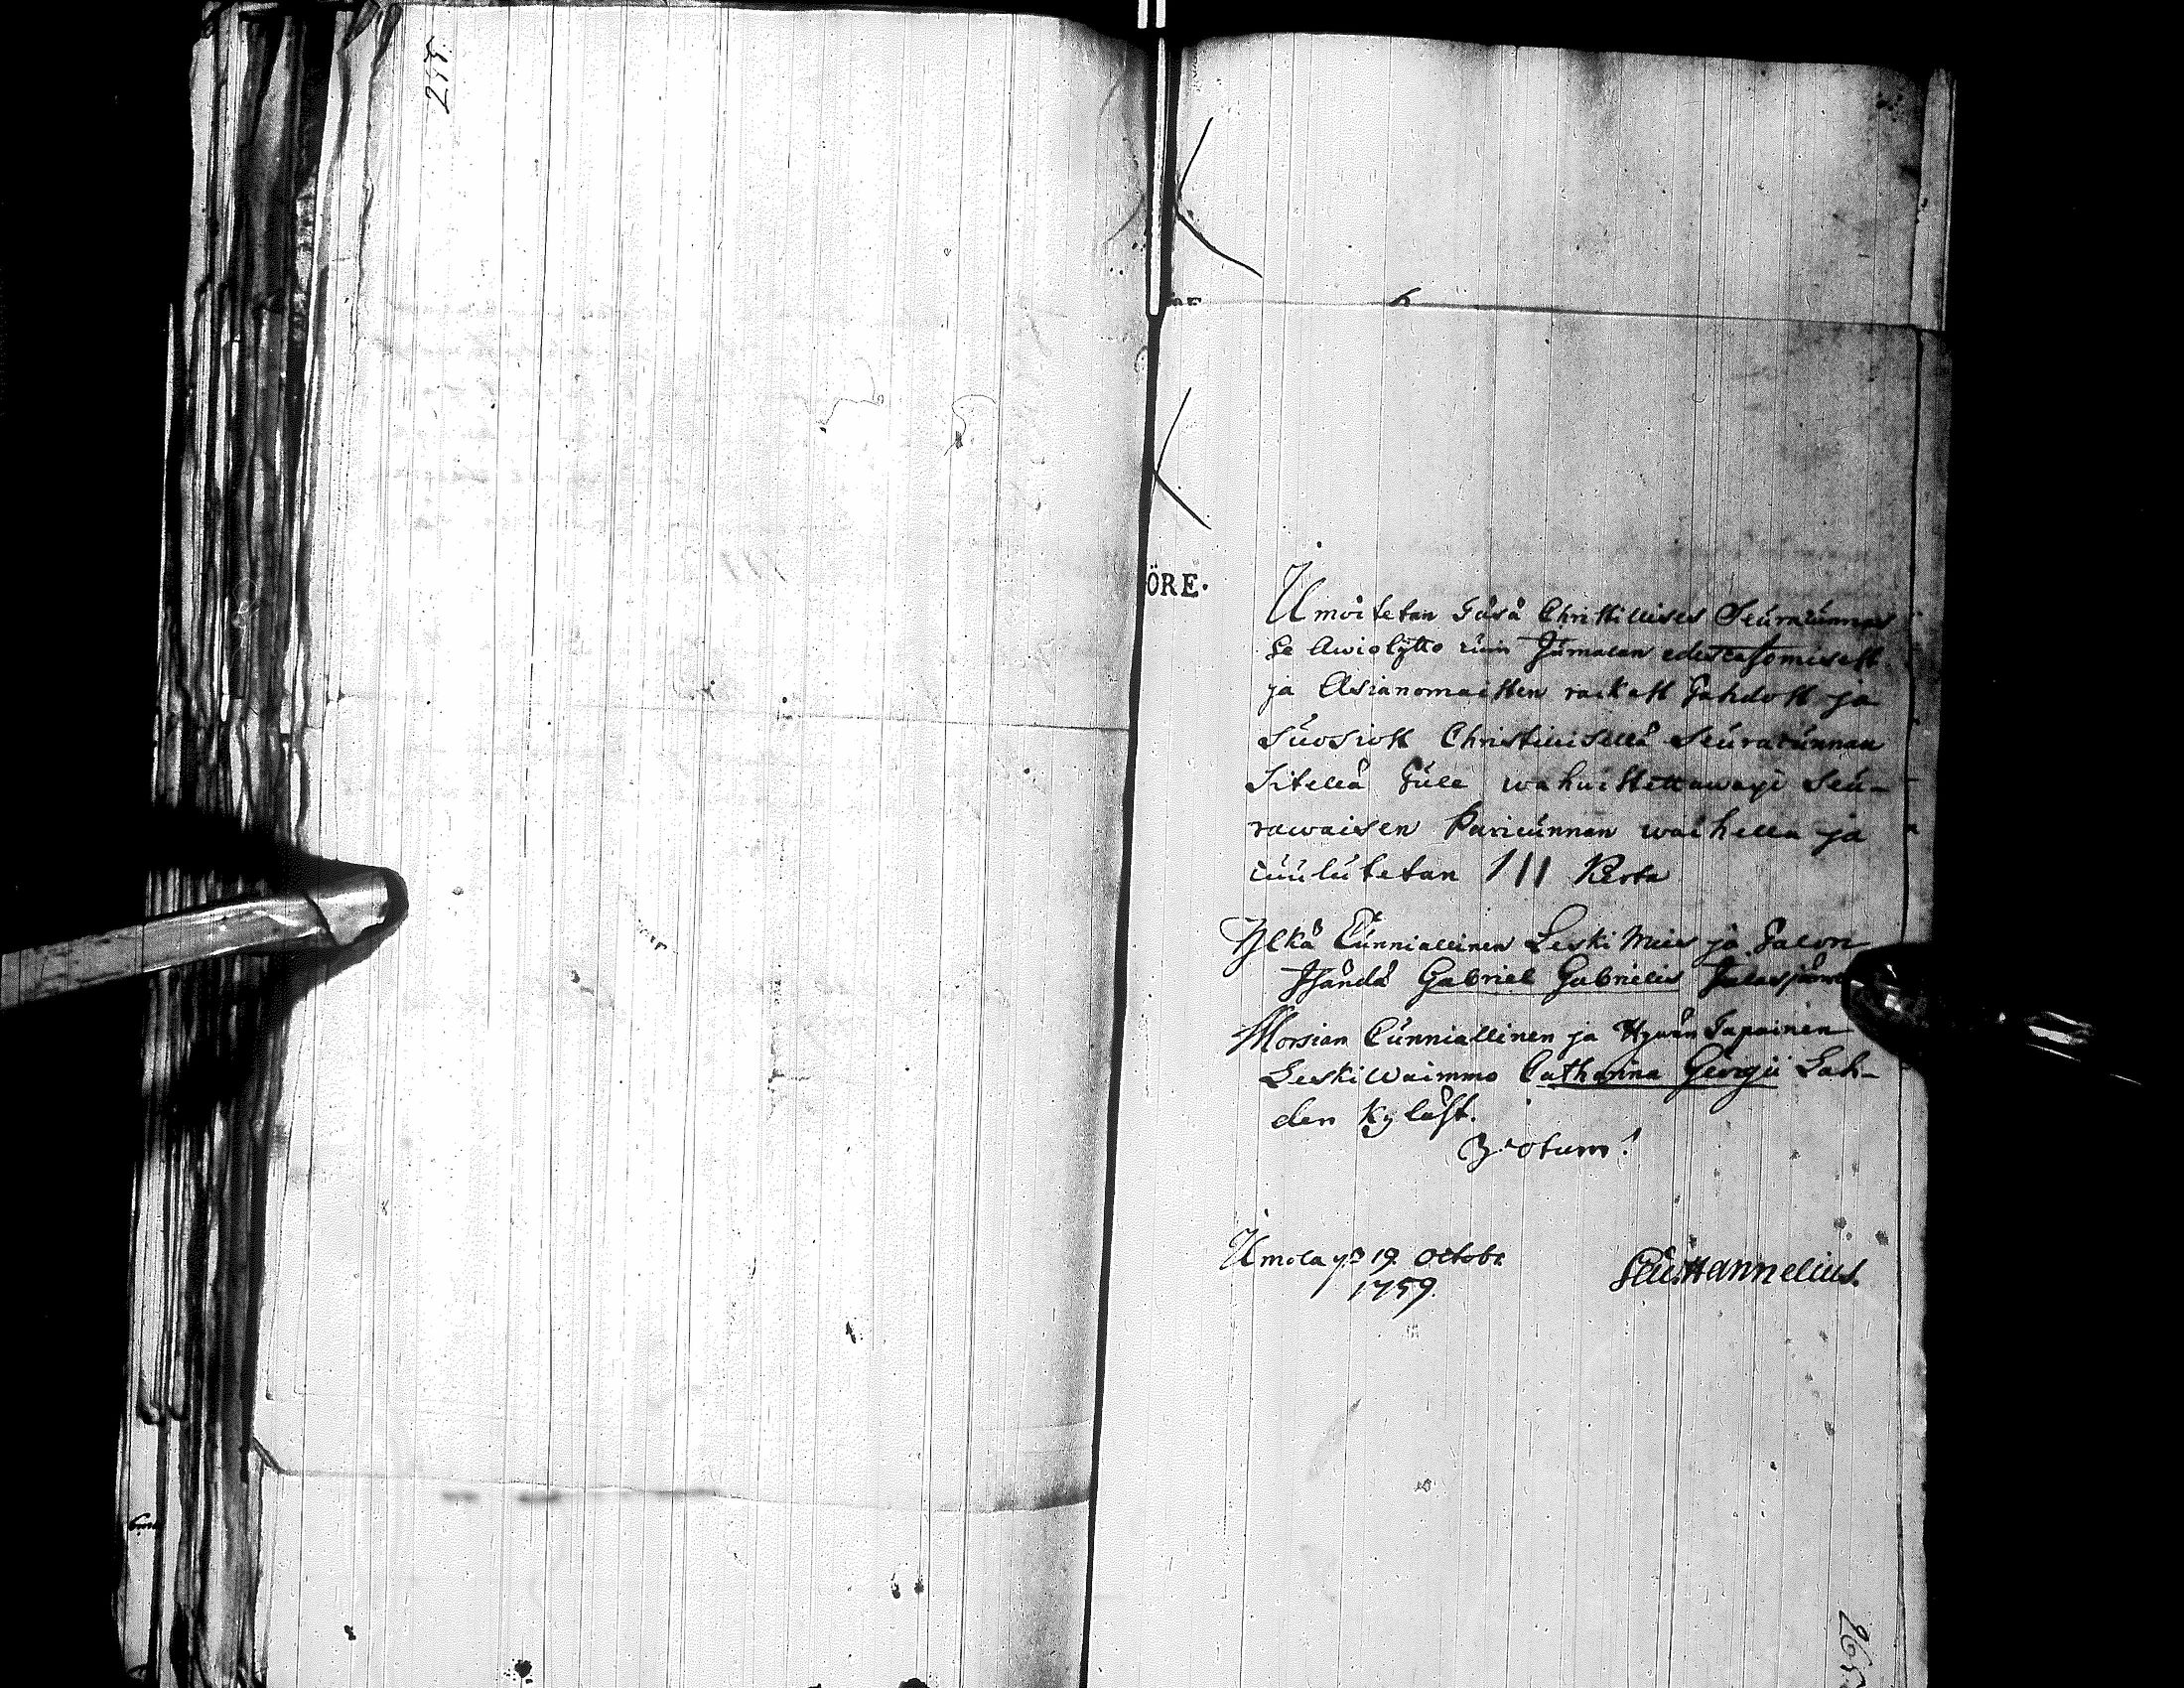 215.
ÖRE.
Ilmoitetan Täsä Christillises Seuracunnas
Se Awiolijtto cuin Jumalan edescatzomisest
ja Asianomaisten rackast Tahdost ja
Suosiost Christilliseldä Seuracunnan
Siteldä Tule wahwistettawaxi Seu-
rawaisen Paricunnan waihella ja
cuulutetan III Kerta
Ylkä Cunniallinen Leski Mies ja Talon
Isändä Gabriel Gabrielis
Morsian Cunniallinen ja Hywän Tapainen
Leski Waimmo Catharina Georgii Lah-
den Kyläst.
Votum!
Ilmola 19 Octobr.
1759.
Hannelius.